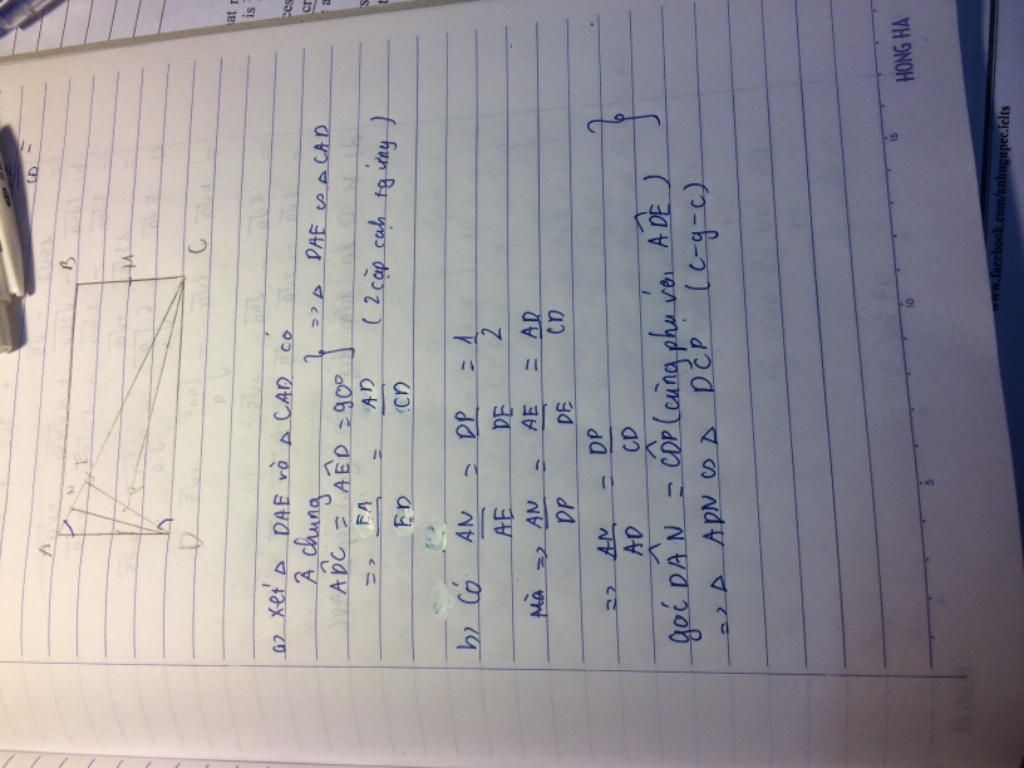 A
B
C
D
E
N
P
M
a, Xét Δ DAE và Δ CAD có
Â chung
ADC = AED = 90° } => Δ DAE ∽ Δ CAD
=> EA/ED = AD/CD (2 cặp cạnh tg ứng)
b, Có AN/AE = DP/DE = 1/2
Mà => AN/DP = AE/DE = AD/CD
=> AN/AD = DP/CD
góc DAN = CDP (cùng phụ với ADE) }
=> Δ ADN ∽ Δ DCP (c-g-c)
5
10
15
HONG HA
www.facebook.com/anhngupec.ielts
CD =